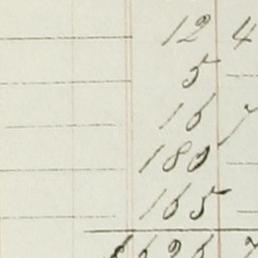 12 4
5
16 7
180
165